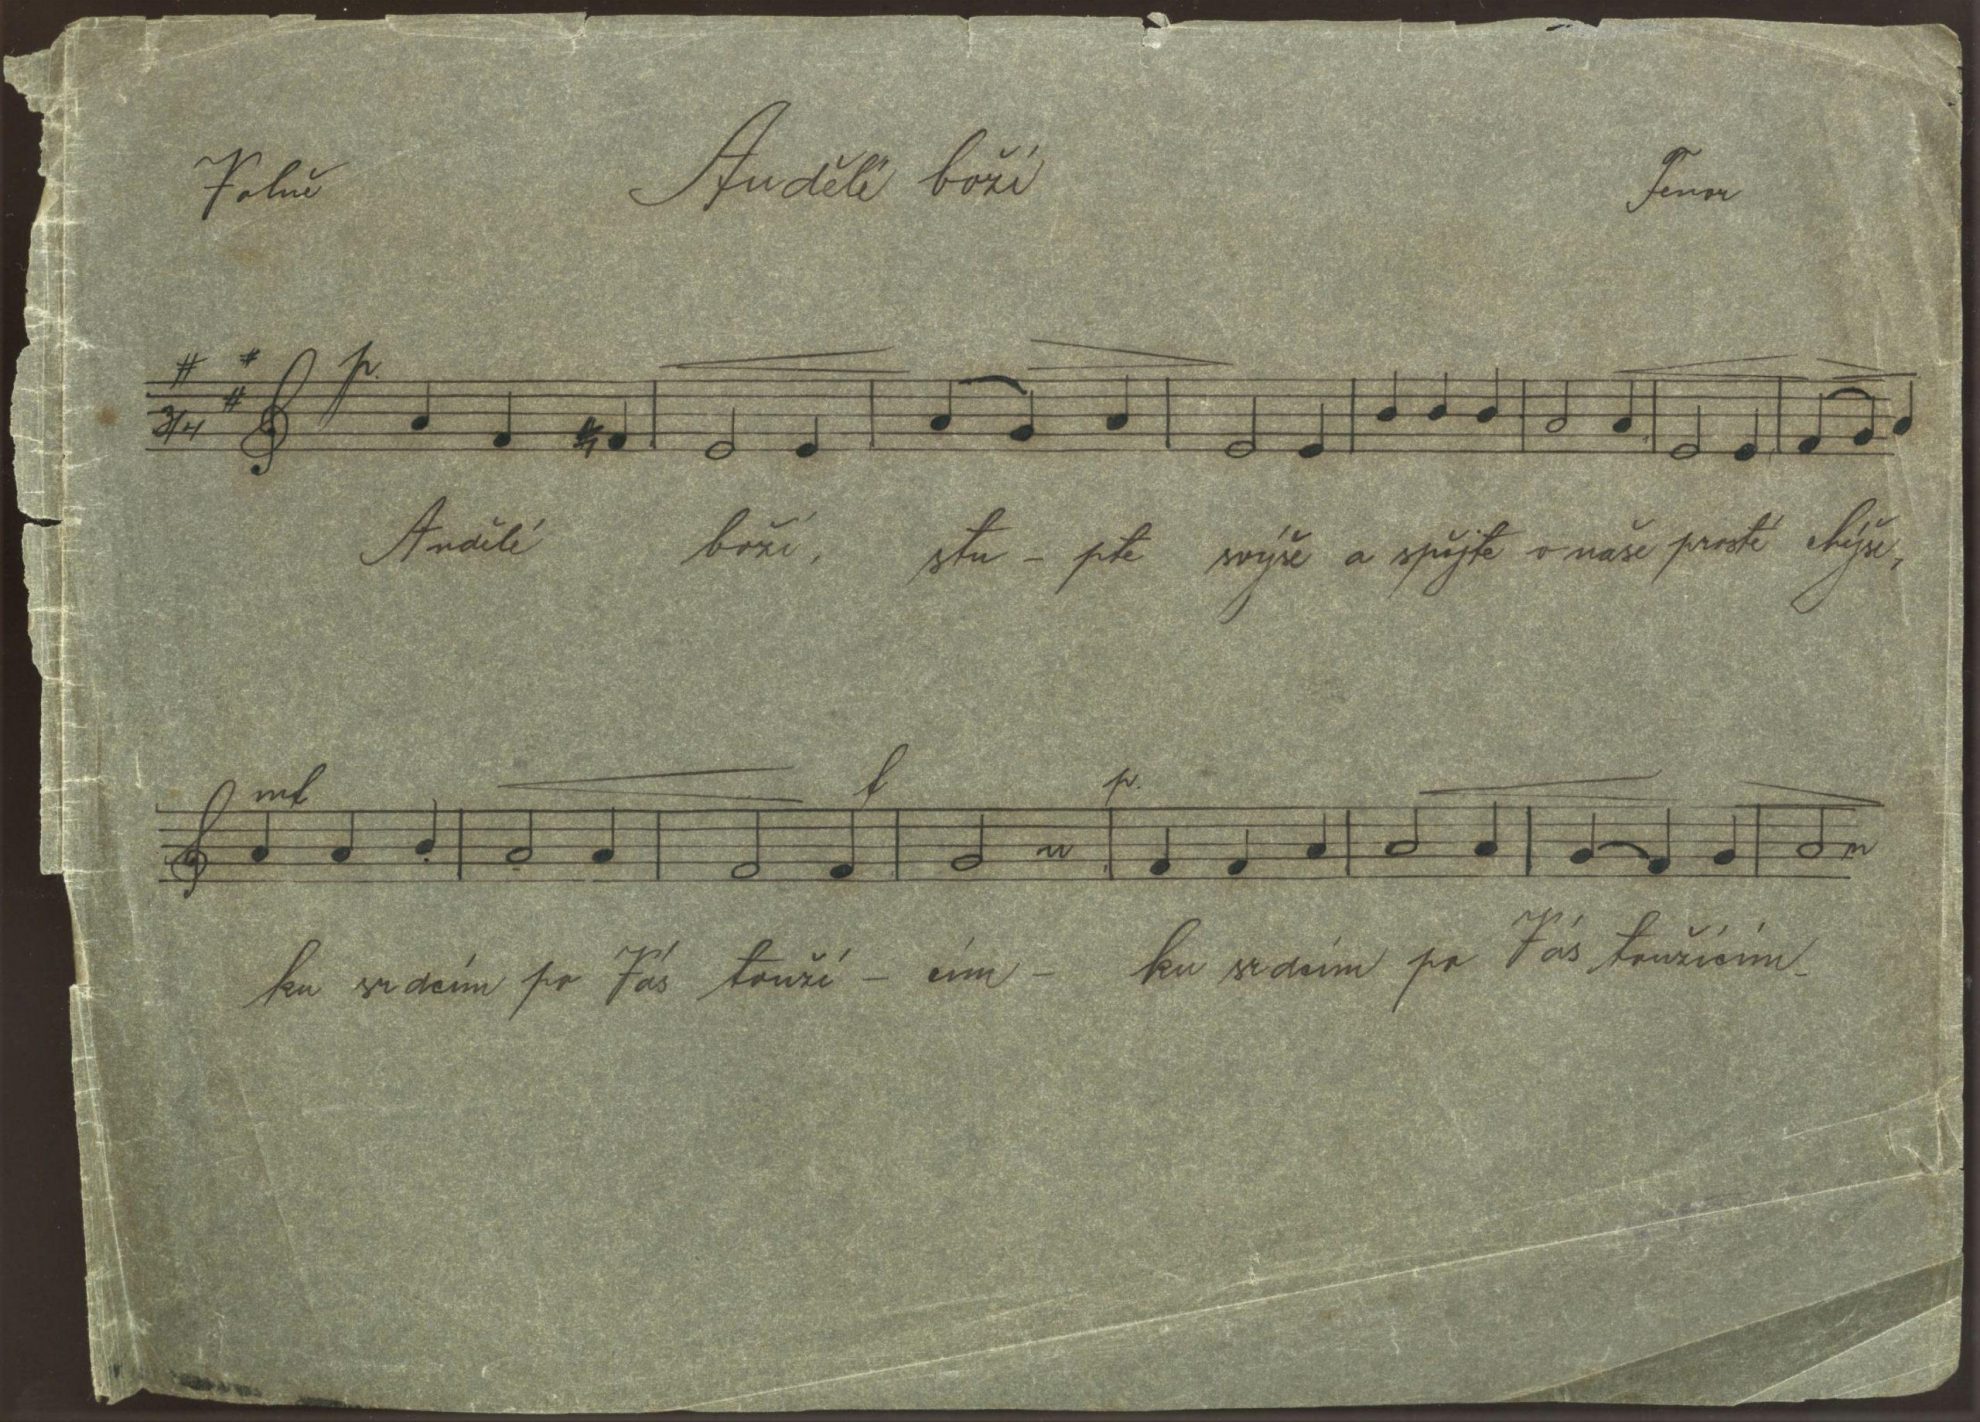 Volně Andělé boží Tenor
p.
3/4
Andělé boží, stu - pte svýše a spějte v naše prosté chýše,
mf f p.
ku srdcím po Vás touží - cím - ku srdcím po Vás toužícím -